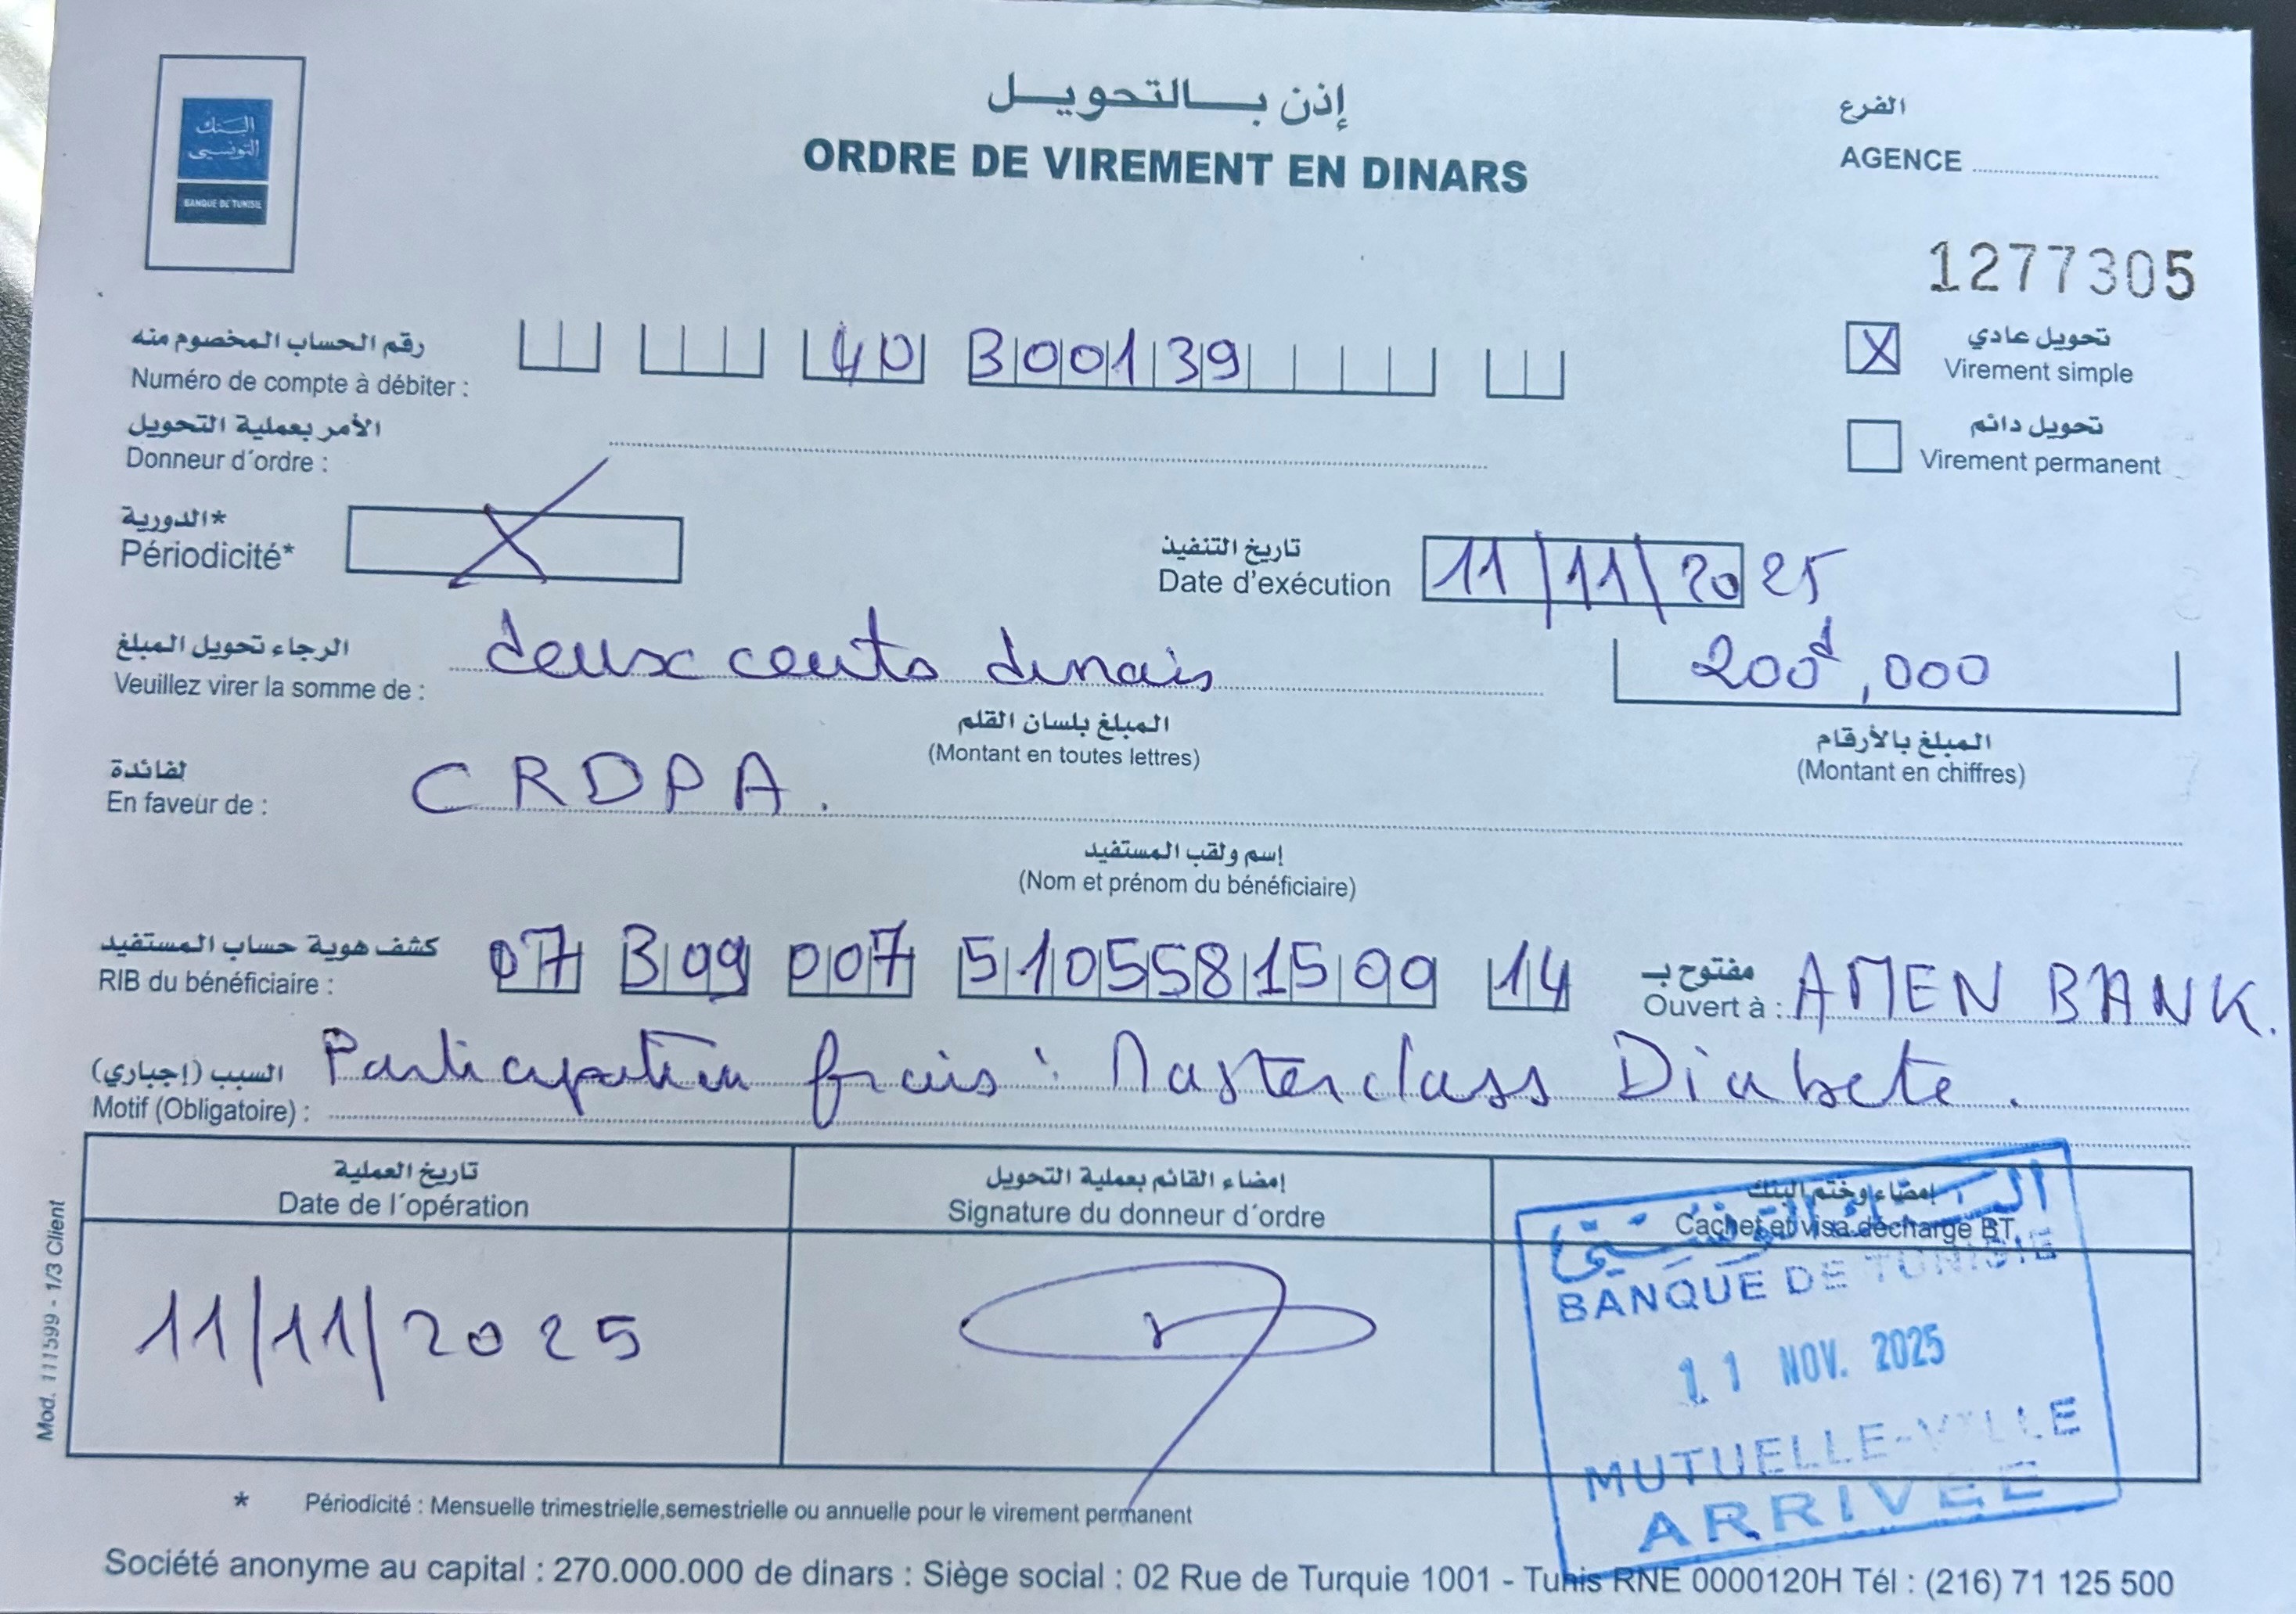 البنك
التونسي
BANQUE DE TUNISIE
إذن بالتحويل
ORDRE DE VIREMENT EN DINARS
الفرع
AGENCE
1277305
رقم الحساب المخصوم منه
Numéro de compte à débiter : 40 300139
تحويل عادي
X Virement simple
الأمر بعملية التحويل
Donneur d´ordre :
تحويل دائم
Virement permanent
الدورية*
Périodicité* X
تاريخ التنفيذ
Date d'exécution 11/11/2025
الرجاء تحويل المبلغ
Veuillez virer la somme de : deux cents dinais 200d,000
المبلغ بلسان القلم
(Montant en toutes lettres)
المبلغ بالأرقام
(Montant en chiffres)
لفائدة
En faveur de : CRDPA.
إسم ولقب المستفيد
(Nom et prénom du bénéficiaire)
كشف هوية حساب المستفيد
RIB du bénéficiaire : 07 309 007 5105581509 14
مفتوح بـ
Ouvert à : AMEN BANK.
السبب (إجباري)
Motif (Obligatoire) : Participation frais : Masterclass Diabete.
تاريخ العملية
Date de l´opération
إمضاء القائم بعملية التحويل
Signature du donneur d´ordre
إمضاء وختم البنك
Cachet et visa décharge BT
11/11/2025
البنك التونسي
BANQUE DE TUNISIE
11 NOV. 2025
MUTUELLE-VILLE
ARRIVEE
Mod. 111599 - 1/3 Client
* Périodicité : Mensuelle trimestrielle,semestrielle ou annuelle pour le virement permanent
Société anonyme au capital : 270.000.000 de dinars : Siège social : 02 Rue de Turquie 1001 - Tunis RNE 0000120H Tél : (216) 71 125 500